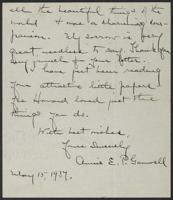 all the beautiful things of the
world & was a charming com-
panion. My sorrow is very
great needless to say. Thank you
very much for your letter.
I have just been reading
your attractive little papers.
Howard loved just the
things you do.
With best wishes,
Yours Sincerely
Annie E. P. Gamwell
May 15, 1937.